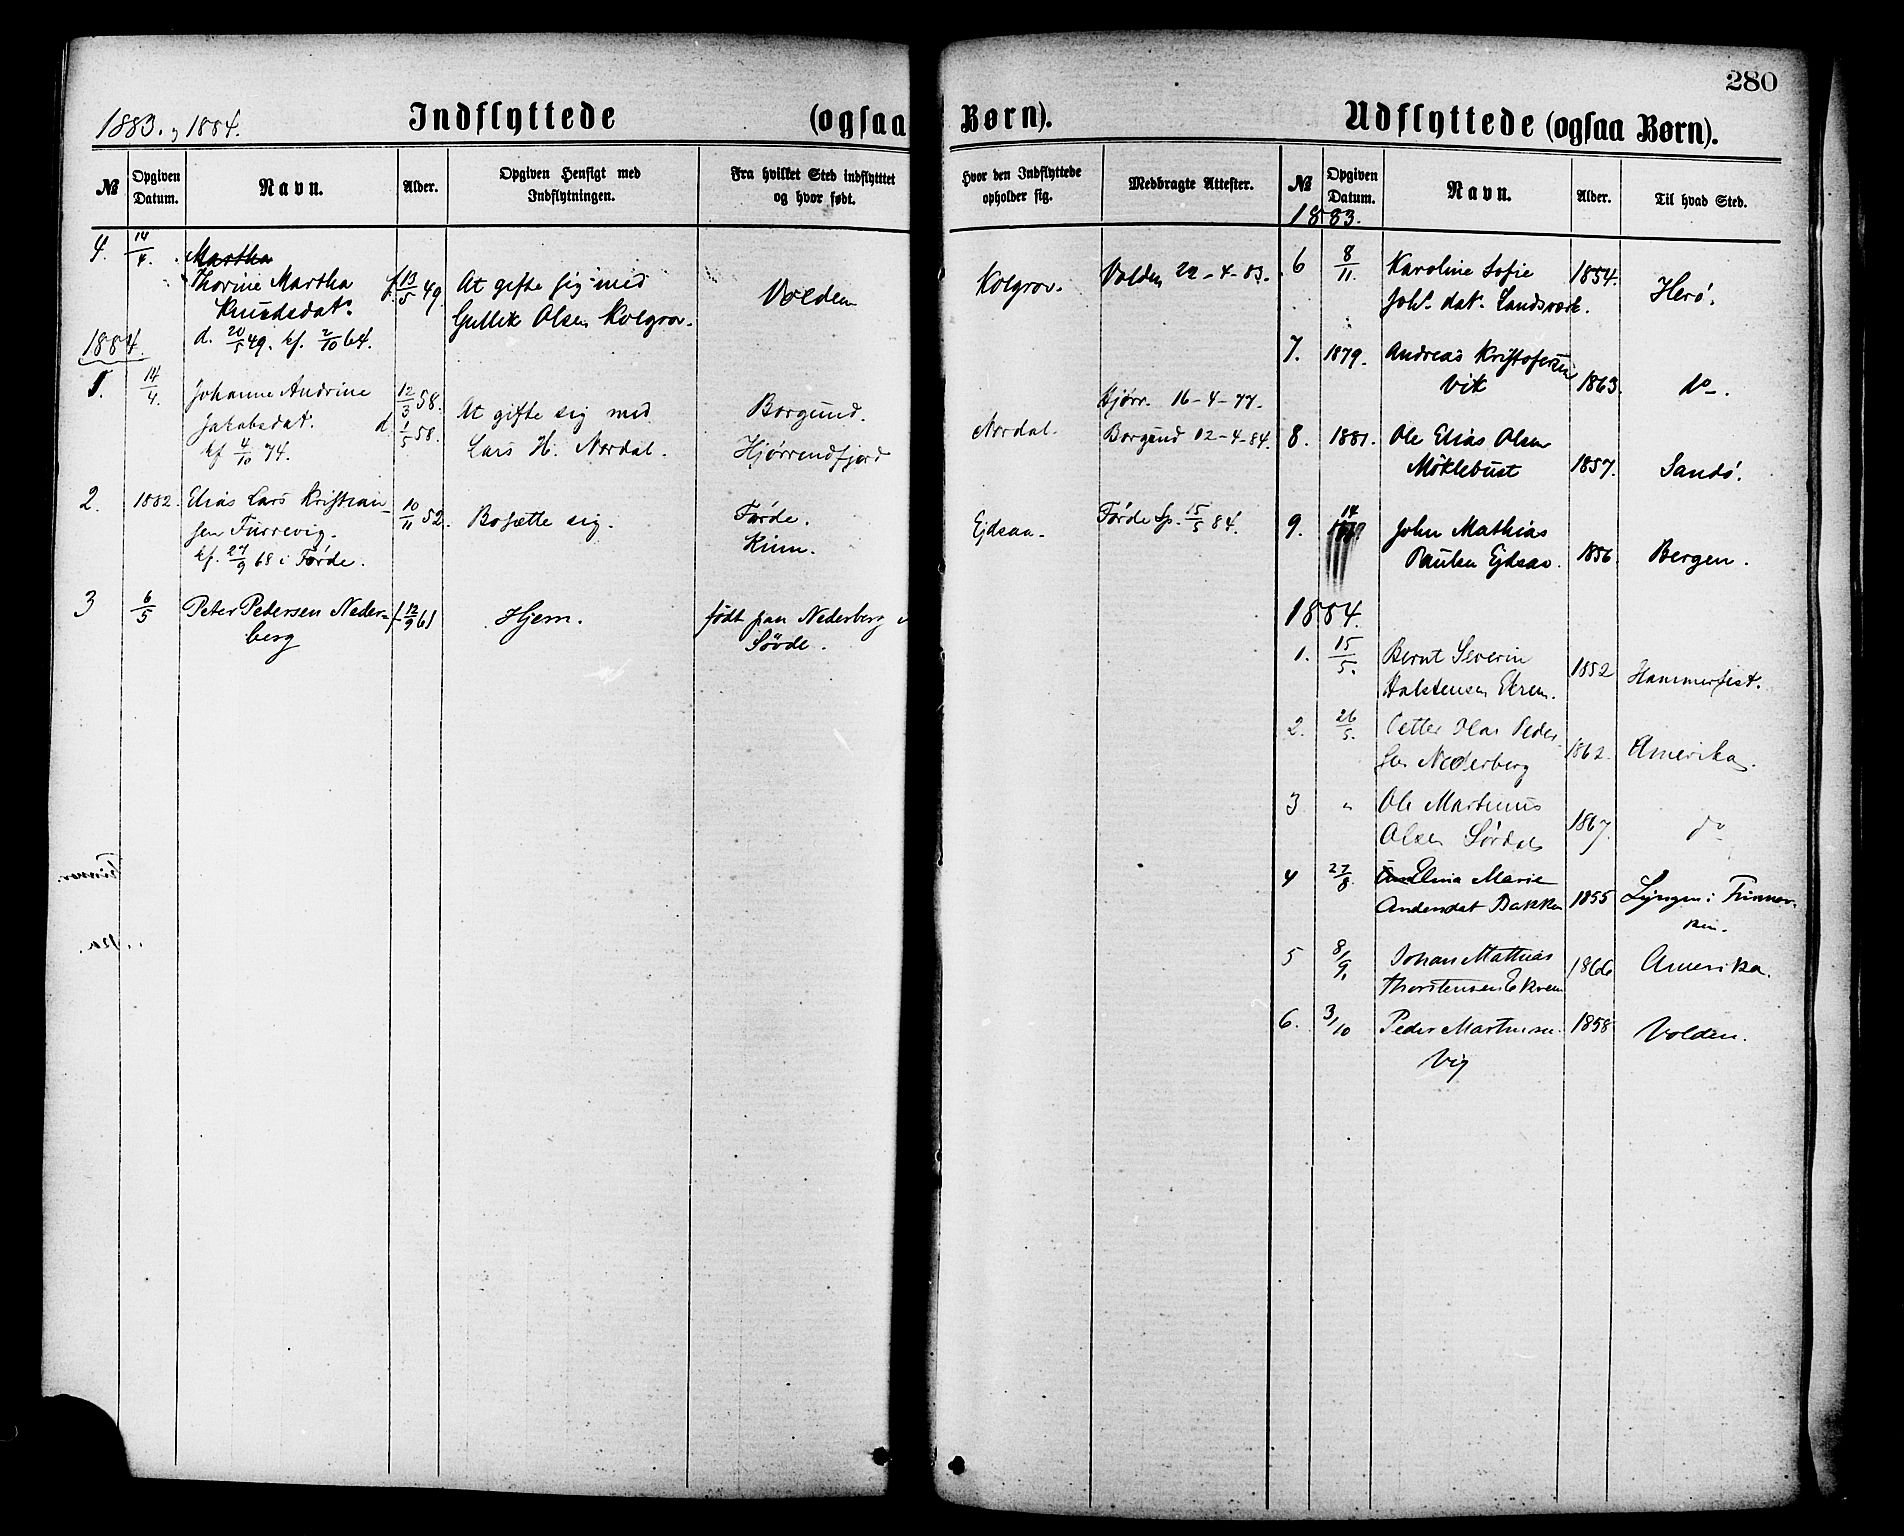 280
1883. og 1884.
Indflyttede (ogsaa Børn).
Udflyttede (ogsaa Børn).
№ Opgiven Datum. Navn. Alder. Opgiven Hensigt med Indflytningen. Fra hvilket Sted indflyttet og hvor født.
Hvor den Indflyttede opholder sig. Medbragte Attester. № Opgiven Datum. Navn. Alder. Til hvad Sted.
4. 14/4. Martha
Thorine Martha f. 13/5 49 At gifte sig med Volden Kolgrov. Volden 22-4-83.
Knudsdat. Gullik Olsen Kolgrov.
d. 20/5 49. kf. 2/10 64.
1884.
1. 14/4. Johanne Andrine 12/3 58. At gifte sig med Borgund. Nordal. Hjørr. 16-4-77.
Jakobsdat. d. 1/5 58. Lars H. Nordal. Hjørrendfjord Borgund 02-4-84.
kf 4/10 74.
2. 1882. Elias Lars Kristian- 10/11 52. Bosætte sig. Førde. Ejdsaa. Førde Sp. 15/5 84.
sen Furrevig. Kinn.
kf. 27/9 68 i Førde.
3 6/5 Peter Pedersen Neder- f. 12/9 61 Hjem. født paa Nederberg i
berg Søvde.
1883.
6 8/11. Karoline Sofie 1854. Herø.
Joh. dat. Landsværk.
7. 1879. Andreas Kristofersen
Vik 1863. do.
8. 1881. Ole Elias Olsen
Møklebust 1857. Sandø.
9. 14 John Mathias
Paulsen Ejdsaa. 1856. Bergen.
1884.
1. 15/5. Bernt Severin 1852 Hammerfest.
Halstensen Ekrem.
2. 26/5. Petter Olai Peder
sen Nederberg 1862. Amerika.
3 " Ole Martinus
Olsen Sørdal 1867. do
4 27/8. Elina Marie
Andersdat Bakken 1855 Lyngen i Finmar-
ken.
5 8/9. Johan Mathias 1866 Amerika.
Thorstensen Ekrem
6. 3/10 Peder Martinsen 1858 Volden.
Vig